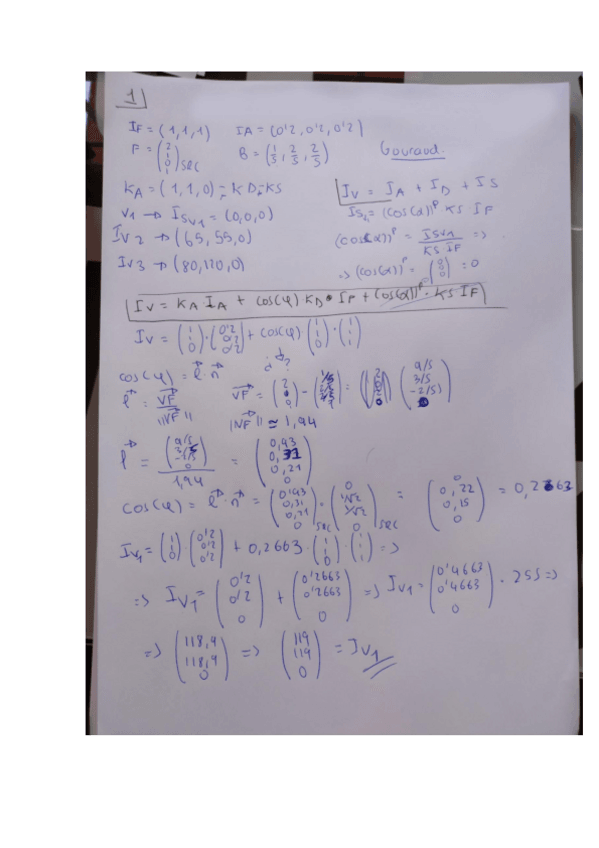 1
IF = (1,1,1)   IA = (0'2, 0'2, 0'2)
F = (2 1 0 1) SCR   B = (1/3, 2/3, 2/3)   Gouraud.
KA = (1,1,0) = KD = KS   IV = IA + ID + IS
V1 → ISV1 = (0,0,0)   = (cos(α))^P KS IF
IV2 → (65, 55, 0)   (cos(α))^P = ISV1 / KS IF =>
IV3 → (80, 120, 0)   => (cos(α))^P = (0 0 0) = 0
IV = KA IA + cos(φ) KD IF + (cos(α))^P · KS IF
IV = (1 1 0) · (0'2 0'2 0'2) + cos(φ) (1 1 0) · (1 1 1)
¿?
cos(φ) = l · n
l = VF / ||VF||   VF = (9/5 3/5 -2/5)
||VF|| ≃ 1,94
l = / 1,94 = (0,93 0,31 0,21 0)
cos(φ) = l · n = (0'93 0,31 0,21 0) · (0 1/√2 1/√2 0) = (0 0,22 0,15 0) = 0,2663
IV1 = (1 1 0) (0'2 0'2 0'2) + 0,2663 · (1 1 0) · (1 1 1) =>
=> IV1 = (0'2 0'2 0) + (0'2663 0'2663 0) => IV1 = (0'4663 0'4663 0) · 255 =>
=> (118,9 118,9 0) => (119 119 0) = IV1